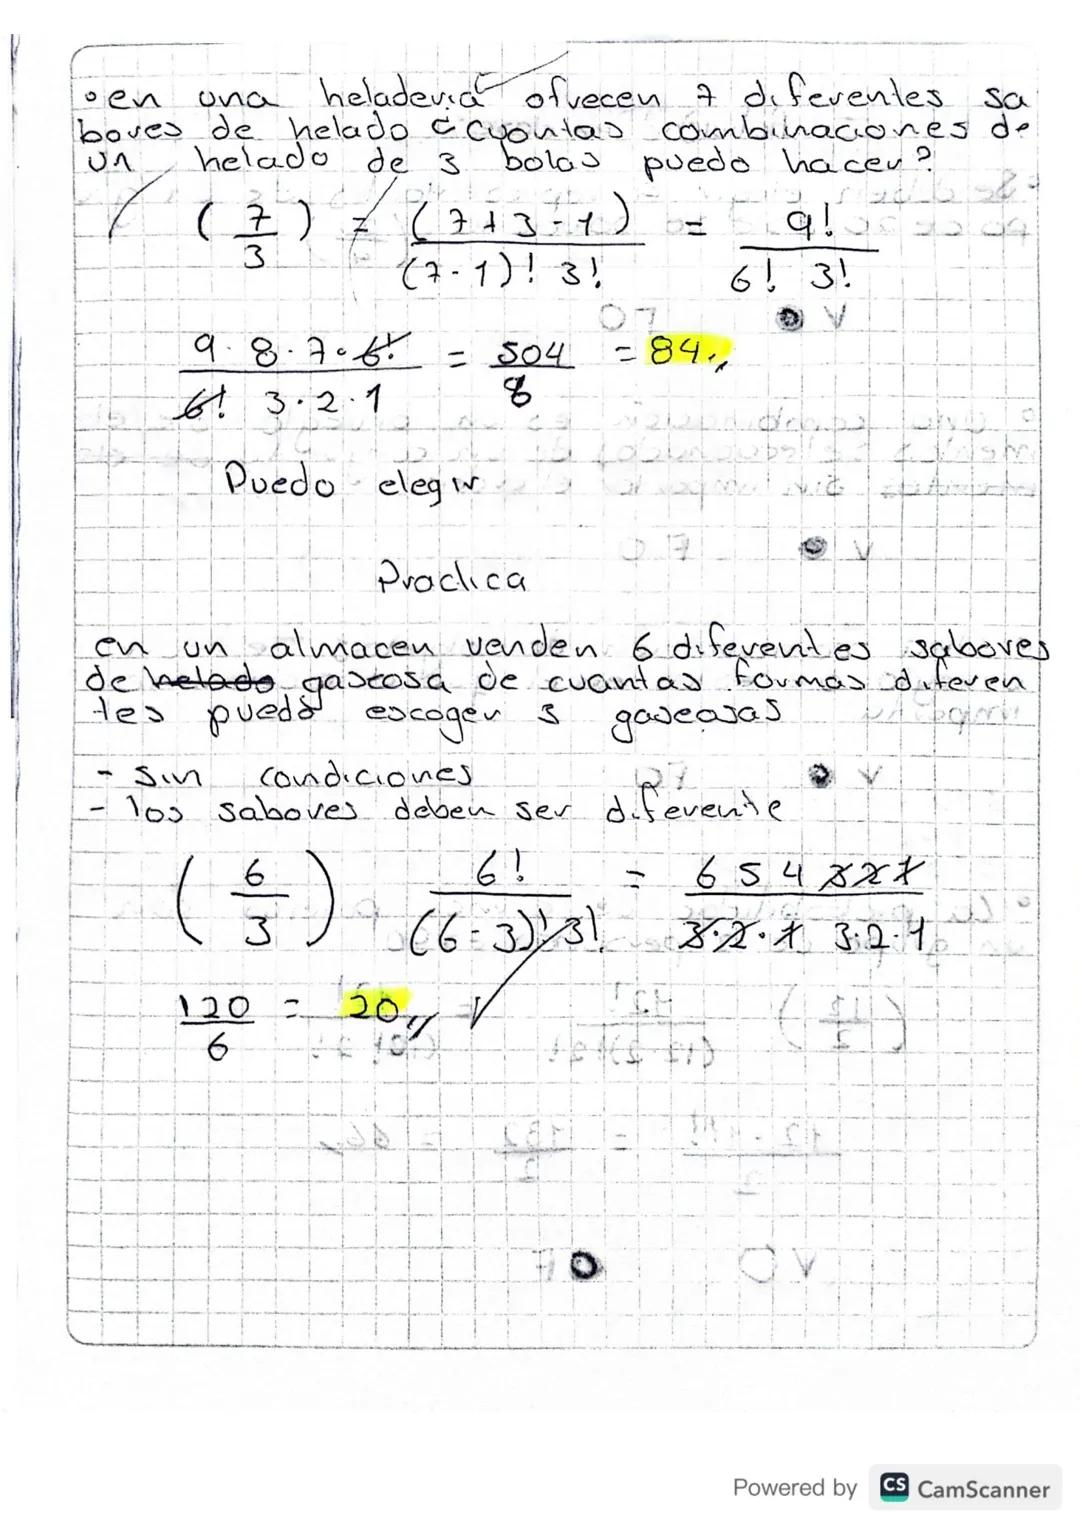 ∘en una heladería ofrecen 7 diferentes sa
bores de helado ¿cuontas combinaciones de
un helado de 3 bolas puedo hacer?
(7/3) = (7+3-1)/(7-1)! 3! = 9!/6! 3!
9·8·7·6!/6! 3·2·1 = 504/8 = 84,,
Puedo elegir
Practica
en un almacen venden 6 diferentes sabores
de helado gaseosa de cuantas formas diferen
tes puedo escoger 3 gaseosas
- Sin condiciones
- los sabores deben ser diferente
(6/3) 6!/(6-3)! 3! = 6 5 4 3 2 1/3·2·1 3·2·1
120/6 = 20,,
Powered by CS CamScanner